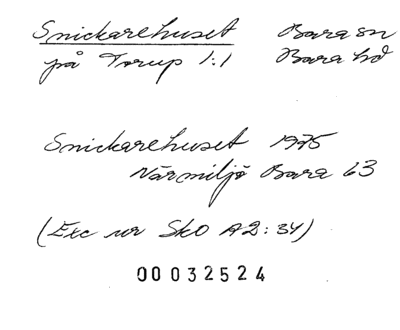 Snickarehuset Bara sn
på Torup 1:1 Bara hd
Snickarehuset 1975
Närmiljö Bara 63
(Exc ur Sko A2:34)
00032524